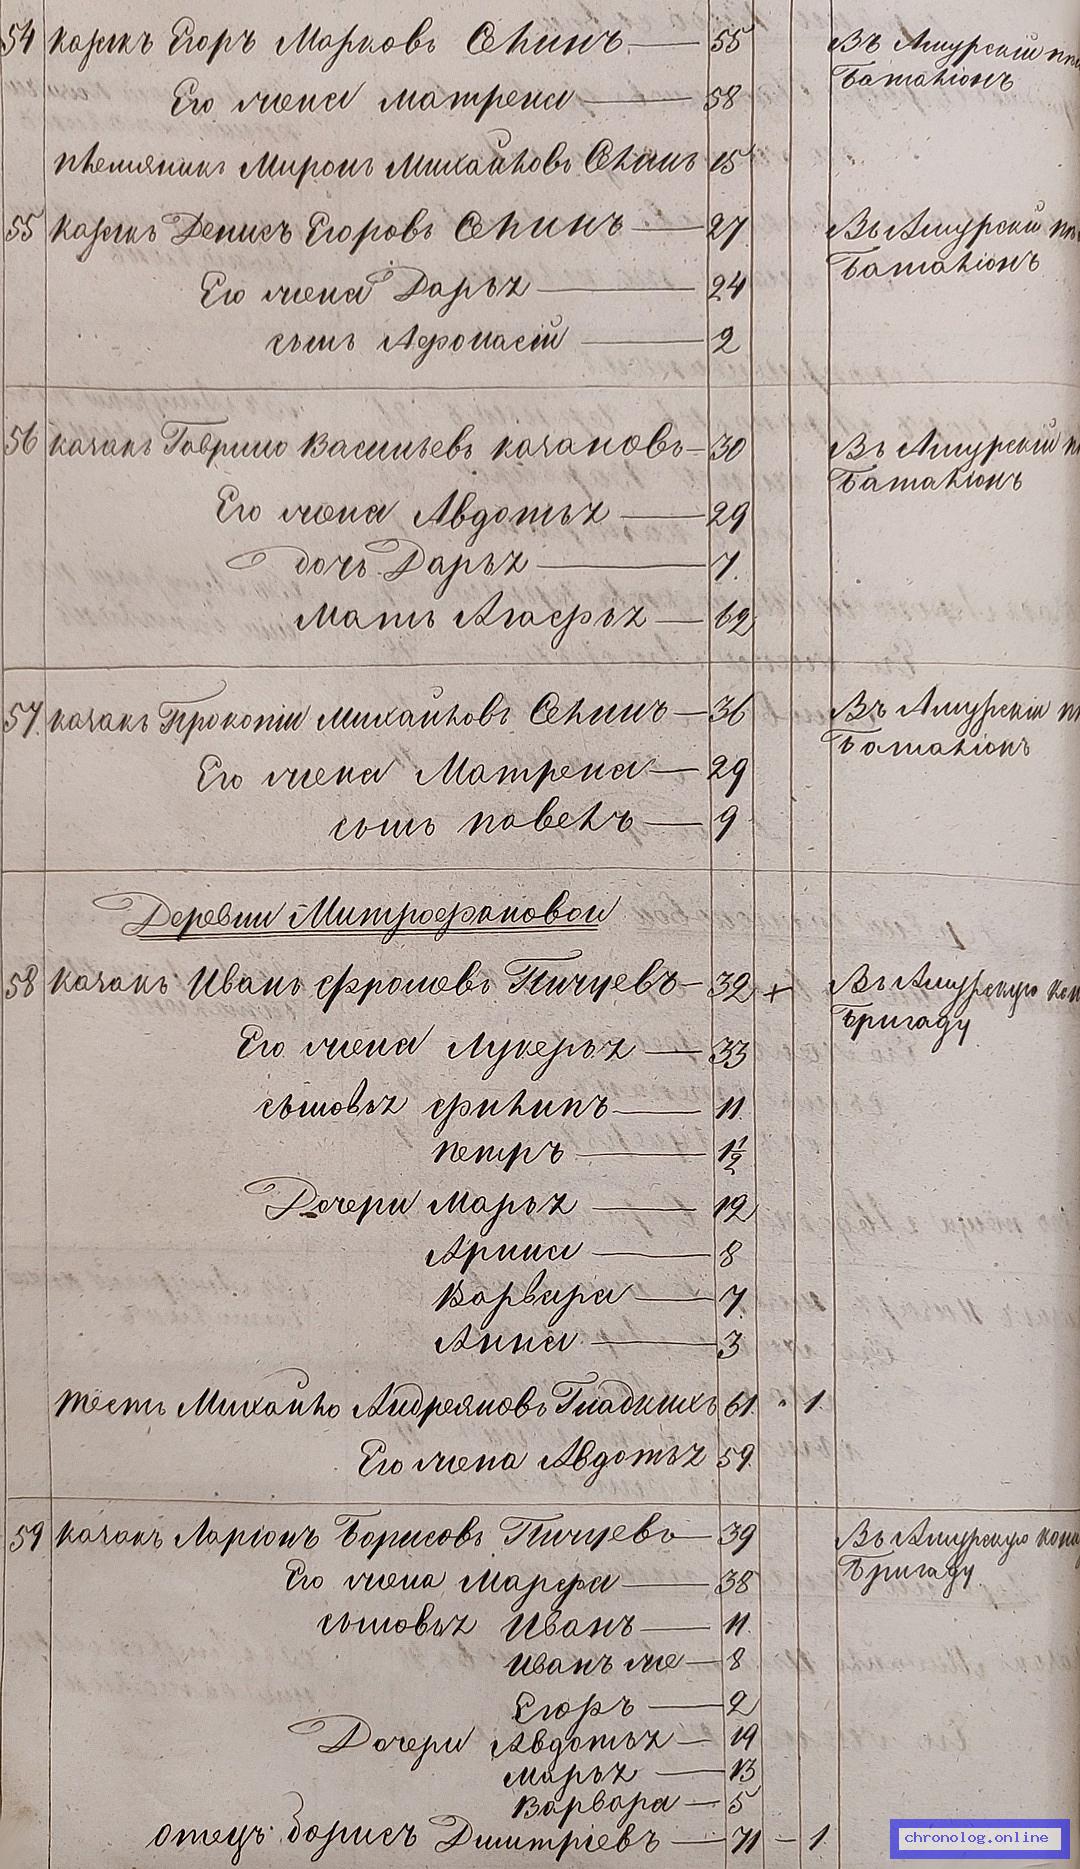 54 казакъ Егоръ Марковъ Ѳлинъ 55 Въ Амурскій
Баталіонъ
Его жена Матрена 58
племяникъ Миронъ Михайловъ Ѳлинъ 15
55 казакъ Денисъ Егоровъ Ѳлинъ 27 Въ Амурскій
Баталіонъ
Его жена Дарья 24
сынъ Афонасій 2
56 казакъ Гаврило Васильевъ казановъ 30 Въ Амурскій
Баталіонъ
Его жена Авдотья 29
дочь Дарья 7.
Мать Агафья 62
57 казакъ Прокопій Михайловъ Ѳлинъ 36 Въ Амурскій
Баталіонъ
Его жена Матрена 29
сынъ павелъ 9
Деревни Митрофановой
58 казакъ Иванъ Фроловъ Пичуевъ 32 + Въ Амурскую
Бригаду
Его жена Лукерья 33
сыновья филипъ 11
петръ 1½
Дочери Марья 12
Арина 8
Варвара 7
Анна 3
тесть Михайло Андреяновъ Гладкихъ 61. " 1.
Его жена Авдотья 59
59 казакъ Ларіонъ Борисовъ Пичуевъ 39 Въ Амурскую
Бригаду
Его жена Марфа 38
сыновья Иванъ 11
Иванъ же 8
Егоръ 2
Дочери Авдотья 19
Марья 13
Варвара 5
отецъ борисъ Дмитріевъ 71 – 1.
chronolog.online